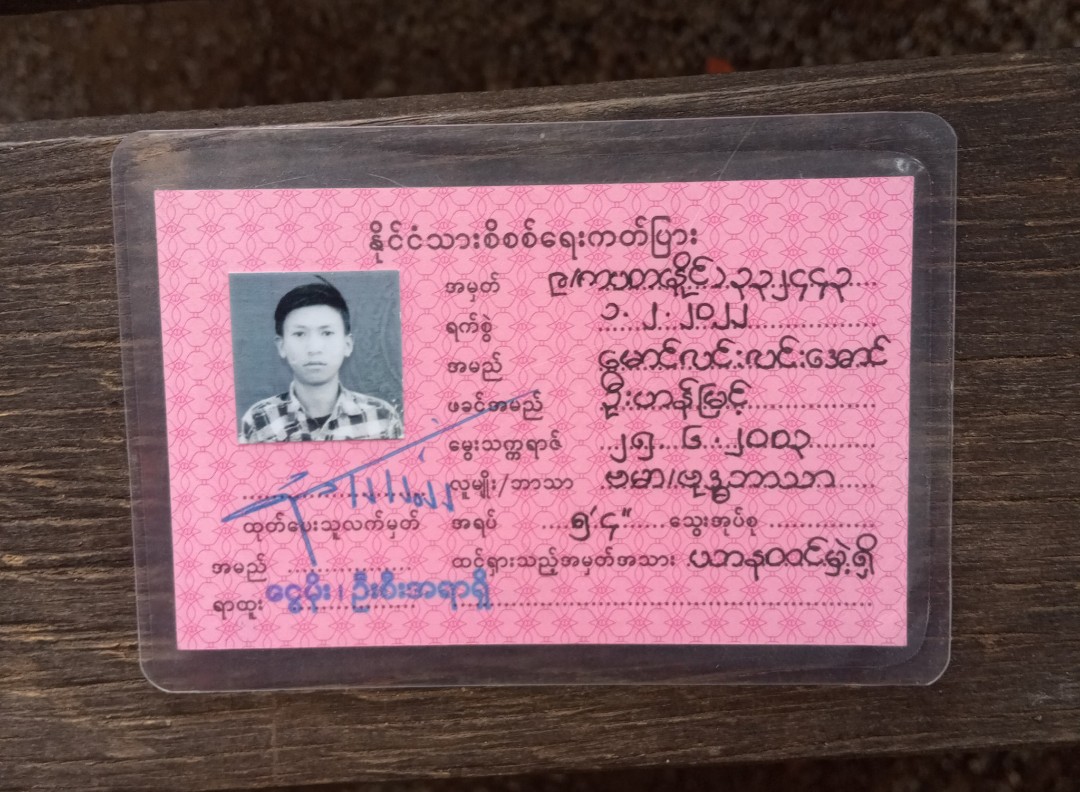 နိုင်ငံသားစိစစ်ရေးကတ်ပြား
အမှတ် ၉/ကပတ(နိုင်)၃၃၂၄၄၃
ရက်စွဲ ၁.၂.၂၀၂၂
အမည် မောင်လင်းလင်းအောင်
ဖခင်အမည် ဦးဟန်မြင့်
မွေးသက္ကရာဇ် ၂၅.၆.၂၀၀၃
လူမျိုး/ဘာသာ ဗမာ/ဗုဒ္ဓဘာသာ
အရပ် ၅'၄" သွေးအုပ်စု
ထင်ရှားသည့်အမှတ်အသား ယာနဖဝင်မှဲ့ရှိ
ထုတ်ပေးသူလက်မှတ်
အမည် ငွေပိုး၊ ဦးစီးအရာရှိ
ရာထူး